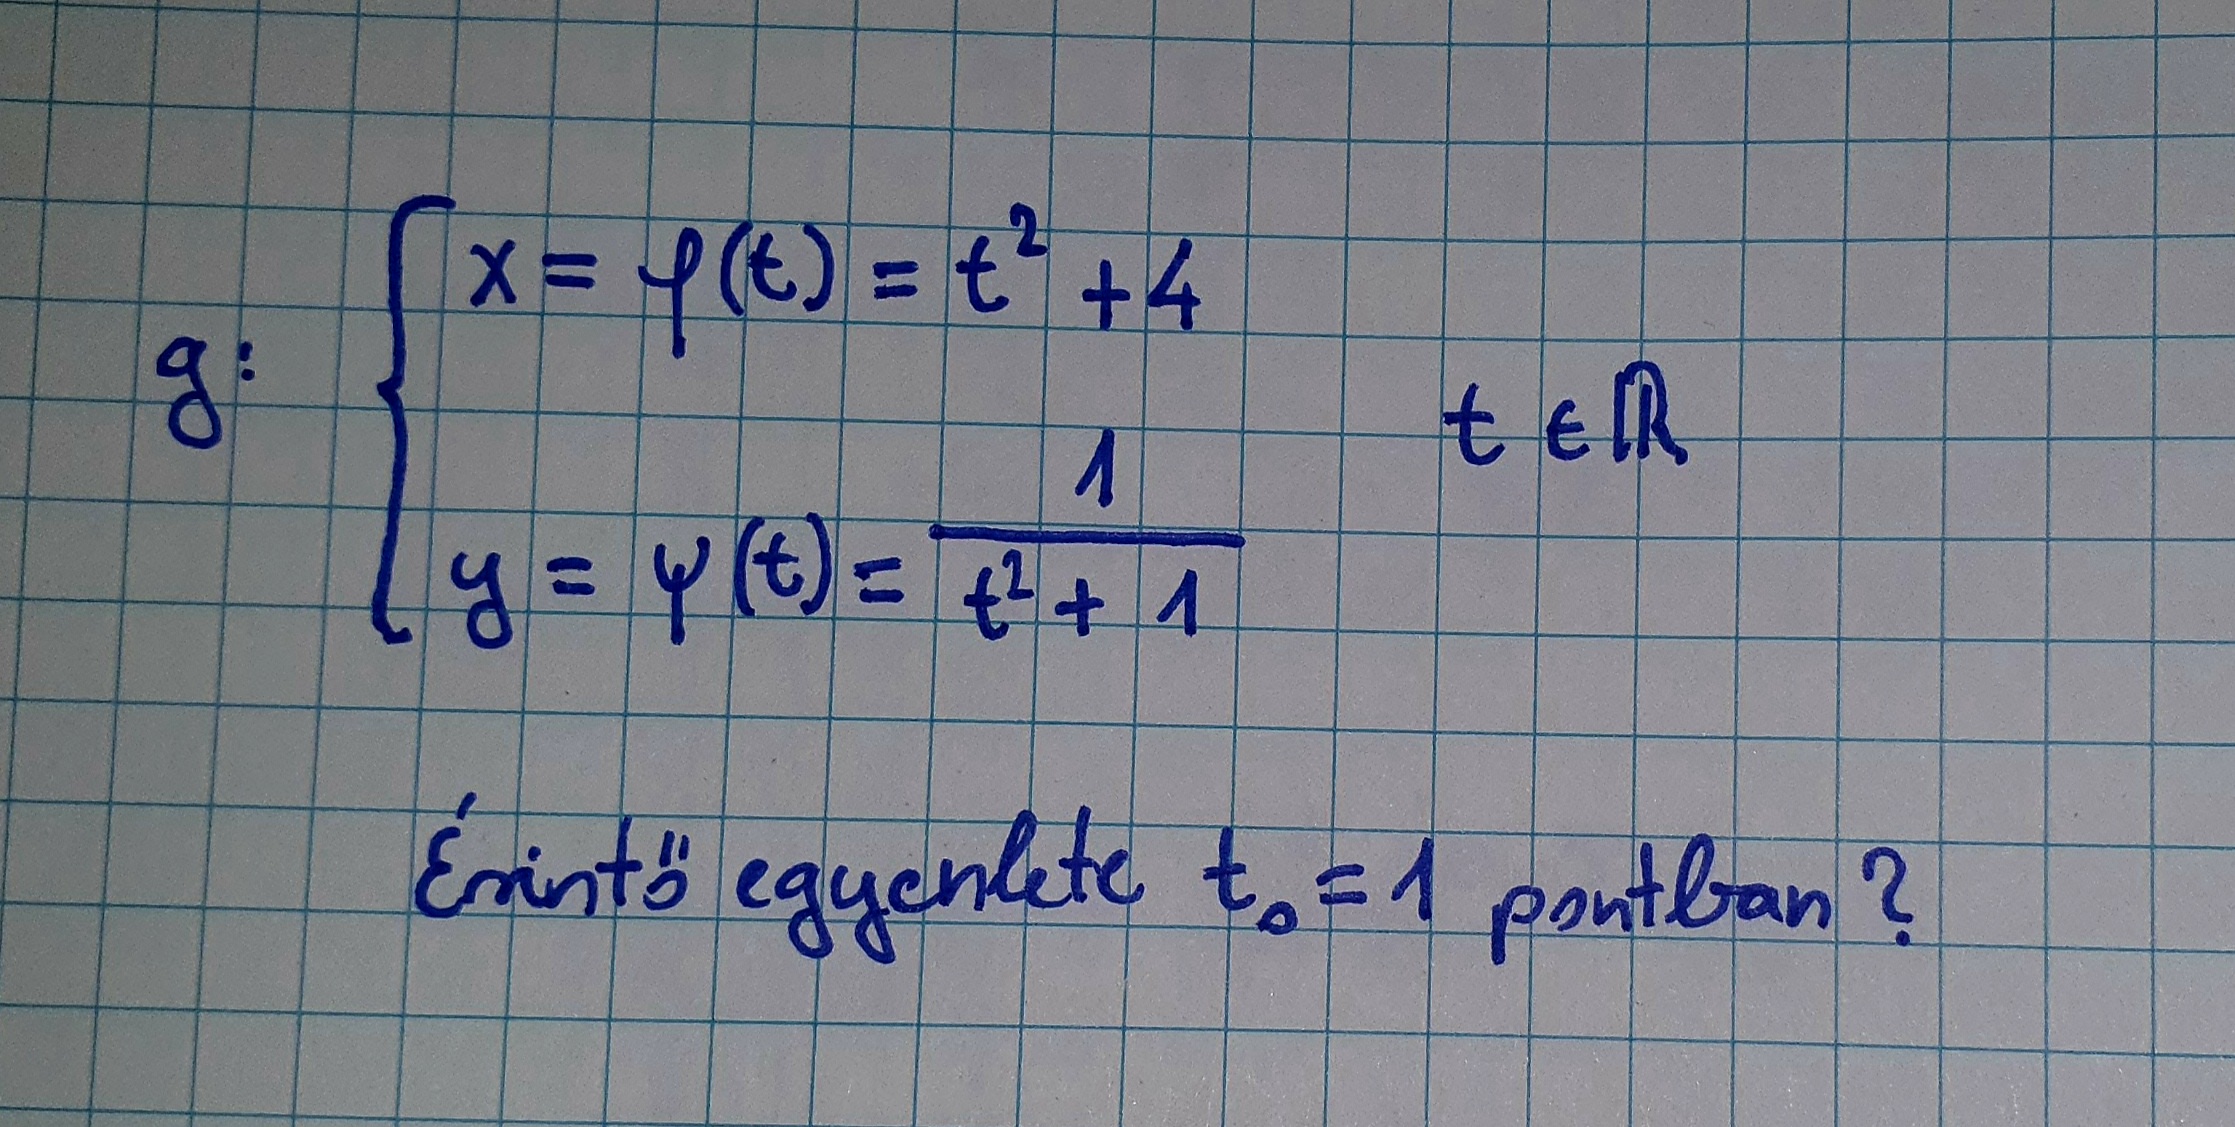 g: { x = φ(t) = t² + 4
t ∈ ℝ
y = ψ(t) = 1 / (t² + 1)
Érintő egyenlete t₀ = 1 pontban?